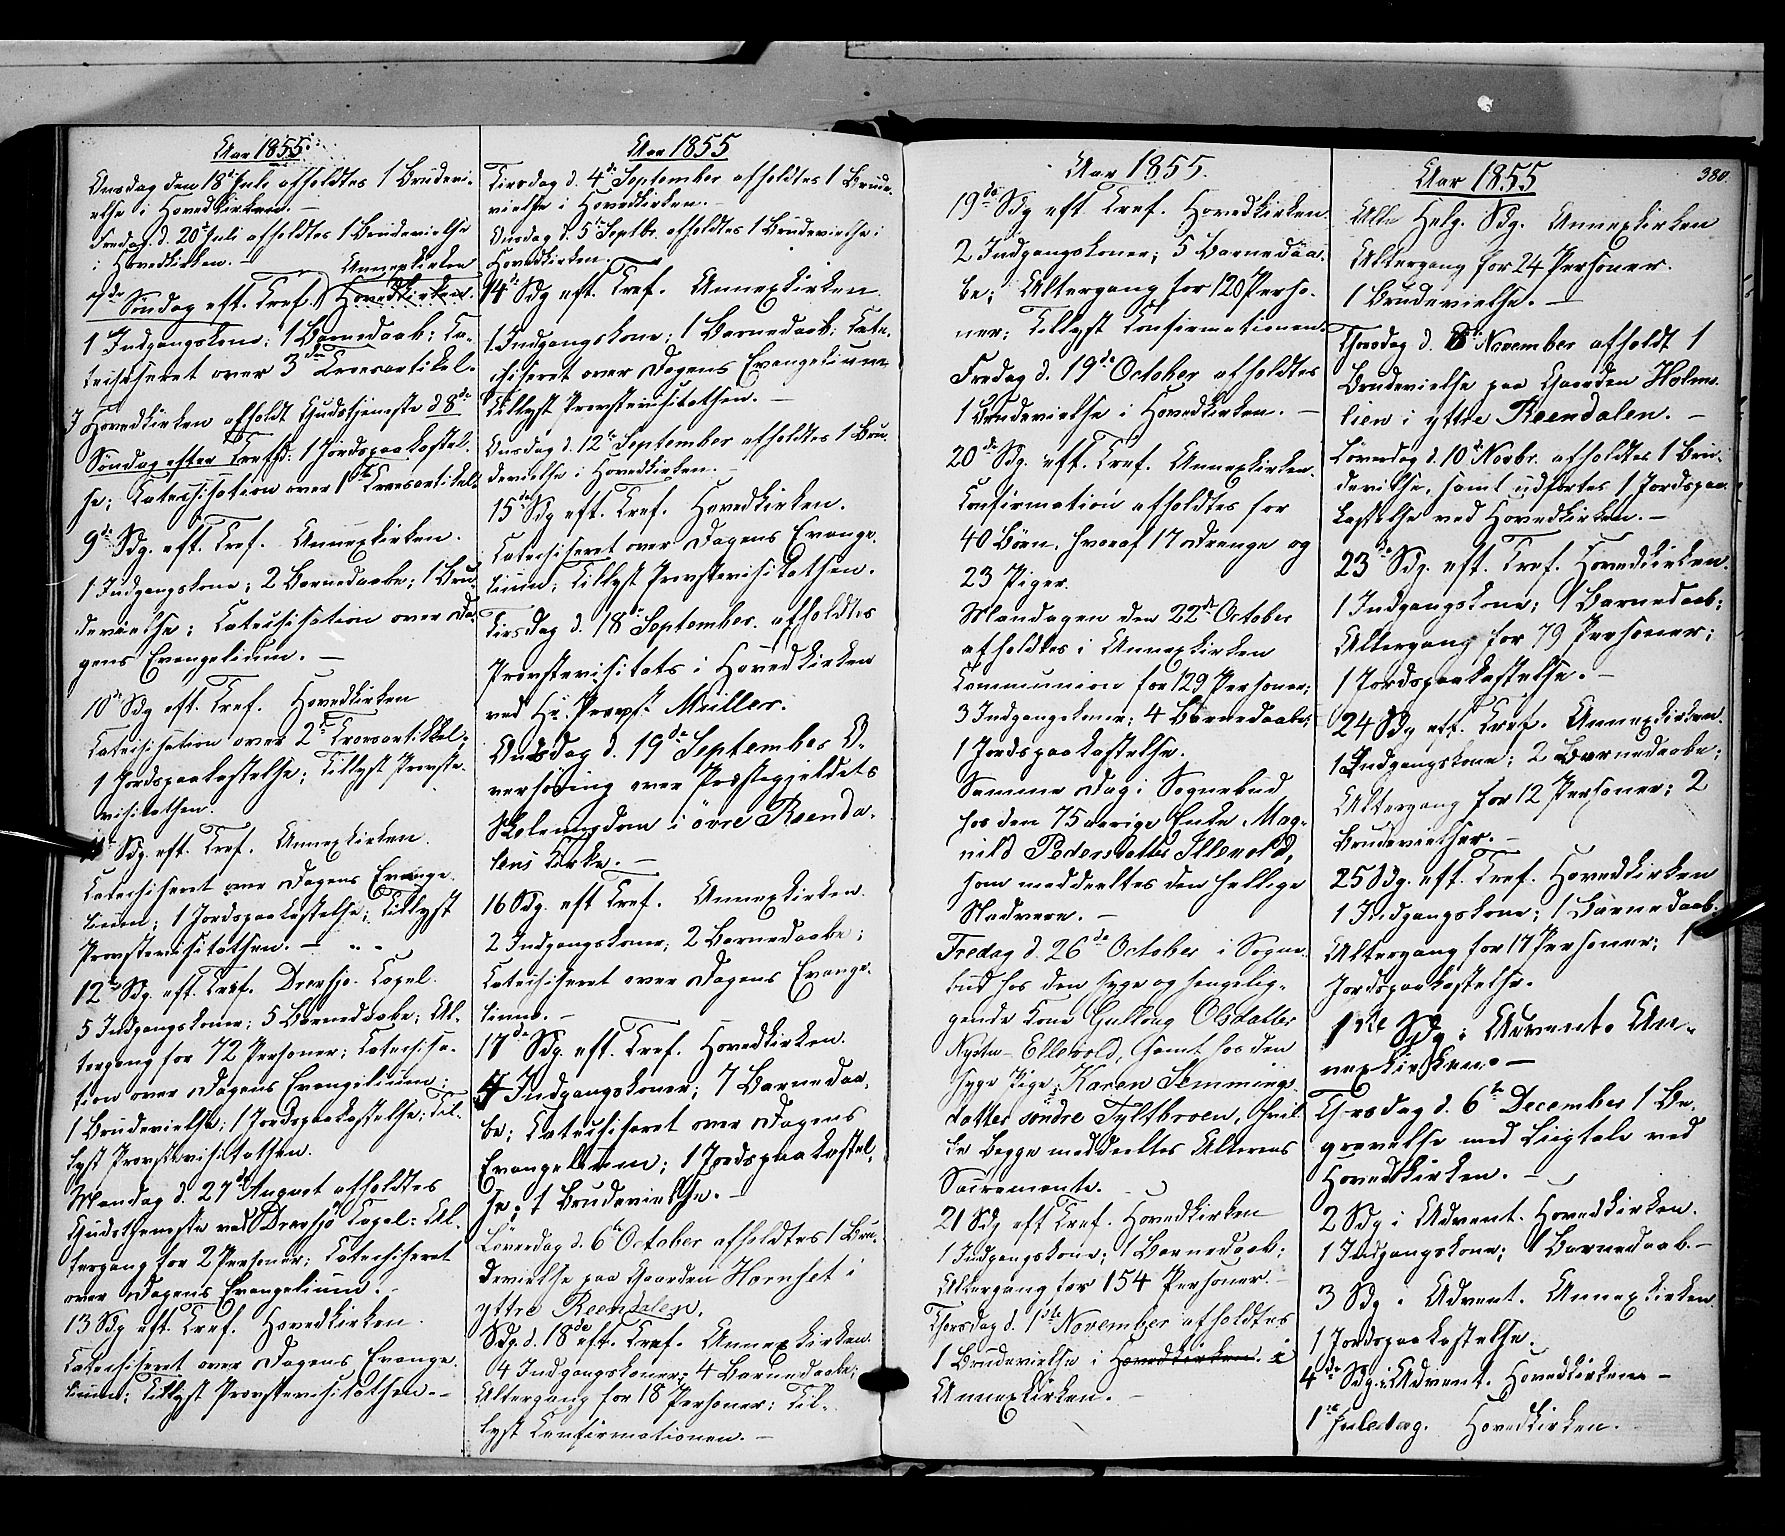 Aar 1855.
Onsdag den 18de Juli afholdtes 1 Brudevi-
else i Hovedkirken. —
Fredag d. 20de Juli afholdtes 1 Brudevielse
i Hovedkirken. —
Annexkirken
7de Søndag eft. Tref. Hovedkirken.
1 Indgangskone; 1 Barnedaab; Ca-
techiseret over 3die Troesartikel.
I Hovedkirken afholdt Gudstjeneste d 8de
Søndag efter Trefh: 1 Jordspaakastel-
se; Catechisation over 1ste Troesartikel.
9de Sdg. eft. Tref. Annexkirken.
1 Indgangskone; 2 Barnedaabe; 1 Bru-
devielse; Catechisation over Da-
gens Evangelium. —
10de Sdg eft. Tref. Hovedkirken
Catechisation over 2den Troesartikkel-
1 Jordspaakastelse; Tillyst Provste-
visitathsen.
11te Sdg. eft. Tref. Annexkirken.
Catechiseret over Dagens Evange-
lium; 1 Jordspaakastelse; Tillyst
Provstevisitathsen. —
12te Sdg. eft. Tref. Drevsjø Capel.
5 Indgangskoner; 5 Barnedaabe; Al-
tergang for 72 Personer; Catechisa-
tion over Dagens Evangelium;
1 Brudevielse; 1 Jordspaakastelse; Til-
lyst Provstevisitathsen.
Mandag d. 27de August afholdtes
Gudstjeneste ved Drevsjø Capel: Al-
tergang for 2 Personer; Catechiseret
over Dagens Evangelium.
13 Sdg eft. Tref. Hovedkirken.
Catechiseret over Dagens Evange-
lium; Tillyst Provstevisitathsen. —
Aar 1855
Tirsdag d. 4de September afholdtes 1 Brude-
vielse i Hovedkirken. —
Onsdag d. 5te Septbr. afholdtes 1 Brudevielse i
Hovedkirken.
14de Sdg eft. Tref. Annexkirken.
1 Indgangskone; 1 Barnedaab; Cate-
chiseret over Dagens Evangelium
Tillyst Provstevisitathsen. —
Onsdag d. 12te September afholdtes 1 Bru-
devielse i Hovedkirken. —
15de Sdg eft. Tref. Hovedkirken.
Catechiseret over Dagens Evange-
lium; Tillyst Provstevisitathsen.
Tirsdag d. 18de September. afholdtes
Provstevisitats i Hovedkirken
ved Hr. Provst Müller.
Onsdag d. 19de September O-
verhøring over Præstegjeldets
Skoleungdom i övre Reenda-
lens Kirke. —
16 Sdg. eft Tref. Annexkirken.
2 Indgangskoner; 2 Barnedaabe;
Catechiseret over Dagens Evange-
lium. —
17de Sdg. eft. Tref. Hovedkirken.
4 Indgangskoner; 7 Barnedaa-
be; Catechiseret over Dagens
Evangelium; 1 Jordspaakastel-
se; 1 Brudevielse. —
Løverdag d. 6te October afholdtes 1 Bru-
devielse paa Gaarden Hornset i
yttre Reendalen.
Sdg. d. 18de eft. Tref. Annexkirken.
4 Indgangskoner; 4 Barnedaabe;
Altergang for 18 Personer; Til-
lyst Confirmationen. —
Aar 1855.
19de Sdg eft. Tref. Hovedkirken.
2 Indgangskoner; 5 Barnedaa-
be; Altergang for 120 Perso-
ner; Tillyst Confirmationen.
Fredag d. 19de October afholdtes
1 Brudevielse i Hovedkirken. —
20de Sdg. eft. Tref. Annexkirken.
Confirmation afholdtes for
40 Børn, hvoraf 17 Drenge og
23 Piger.
Mandagen den 22de October
afholdtes i Annexkirken
Communion for 129 Personer;
3 Indgangskoner; 4 Barnedaabe;
1 Jordspaakastelse.
Samme Dag i Sognebud
hos den 75 aarige Enke Mag-
nild Pedersdatter Illevold,
som meddeeltes den hellige
Nadvere. —
Fredag d. 26de October i Sogne-
bud hos den syge og sengelig-
gende Kone Gullaug Olsdatter
Nystu- Ellevold, samt hos den
syge Pige, Karen Semming-
datter söndre Tyltbroen, hvil-
ke Begge meddeeltes Alterens
Sacramente.
21 Sdg eft Tref. Hovedkirken
1 Indgangskone; 1 Barnedaab;
Altergang for 154 Personer. —
Thorsdag d. 1ste November afholdtes
1 Brudevielse i Hovedkirken. i
Annexkirken. —
380.
Aar 1855
Alle Helg. Sdg. Annexkirken
Altergang for 24 Personer.
1 Brudevielse. —
Thorsdag d. 8de November afholdt 1
Brudevielse paa Gaarden Holm-
lien i yttre Reendalen. —
Løverdag d. 10de Novbr. afholdtes 1 Bru-
devielse, samt udførtes 1 Jordspaa-
kastelse ved Hovedkirken. —
23de Sdg. eft. Tref. Hovedkirken.
1 Indgangskone; 1 Barnedaab;
Altergang for 79 Personer;
1 Jordspaakastelse. —
24 Sdg eft. Tref. Annexkirken.
1 Indgangskone; 2 Barnedaabe;
Altergang for 12 Personer; 2
Brudevielser. —
25 Sdg. eft. Tref. Hovedkirken
1 Indgangskone; 1 Barnedaab.
Altergang for 17 Personer; 1
Jordspaakastelse.
1ste Sdg i Advent. An-
nexkirken. —
Thorsdag d. 6te December 1 Be-
gravelse med Liigtale ved
Hovedkirken. —
2 Sdg i Advent. Hovedkirken.
1 Indgangskone; 1 Barnedaab. —
3 Sdg i Advent. Annexkirken.
1 Jordspaakastelse.
4de Sdg i Advent. Hovedkirken —
1ste Juledag. Hovedkirken.